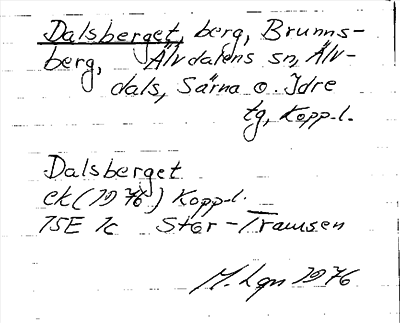 Dalsberget, berg, Brunns-
berg, Älvdalens sn, Älv-
dals, Särna o. Idre
tg, Kopp. l.
Dalsberget
ek (1976) Kopp. l.
15E 1c Stor-Tramsen
M. Lgn 1976